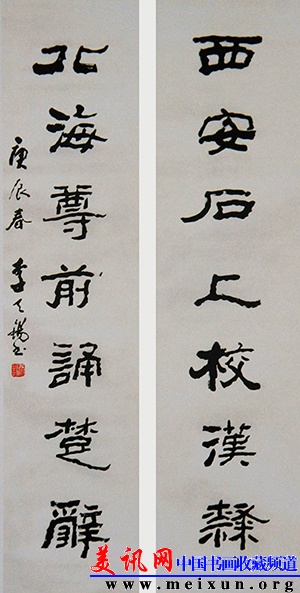 西安石上校漢隸
北海尊前誦楚辭
庚辰春 李天錫書
美讯网
中国书画收藏频道
www.meixun.org